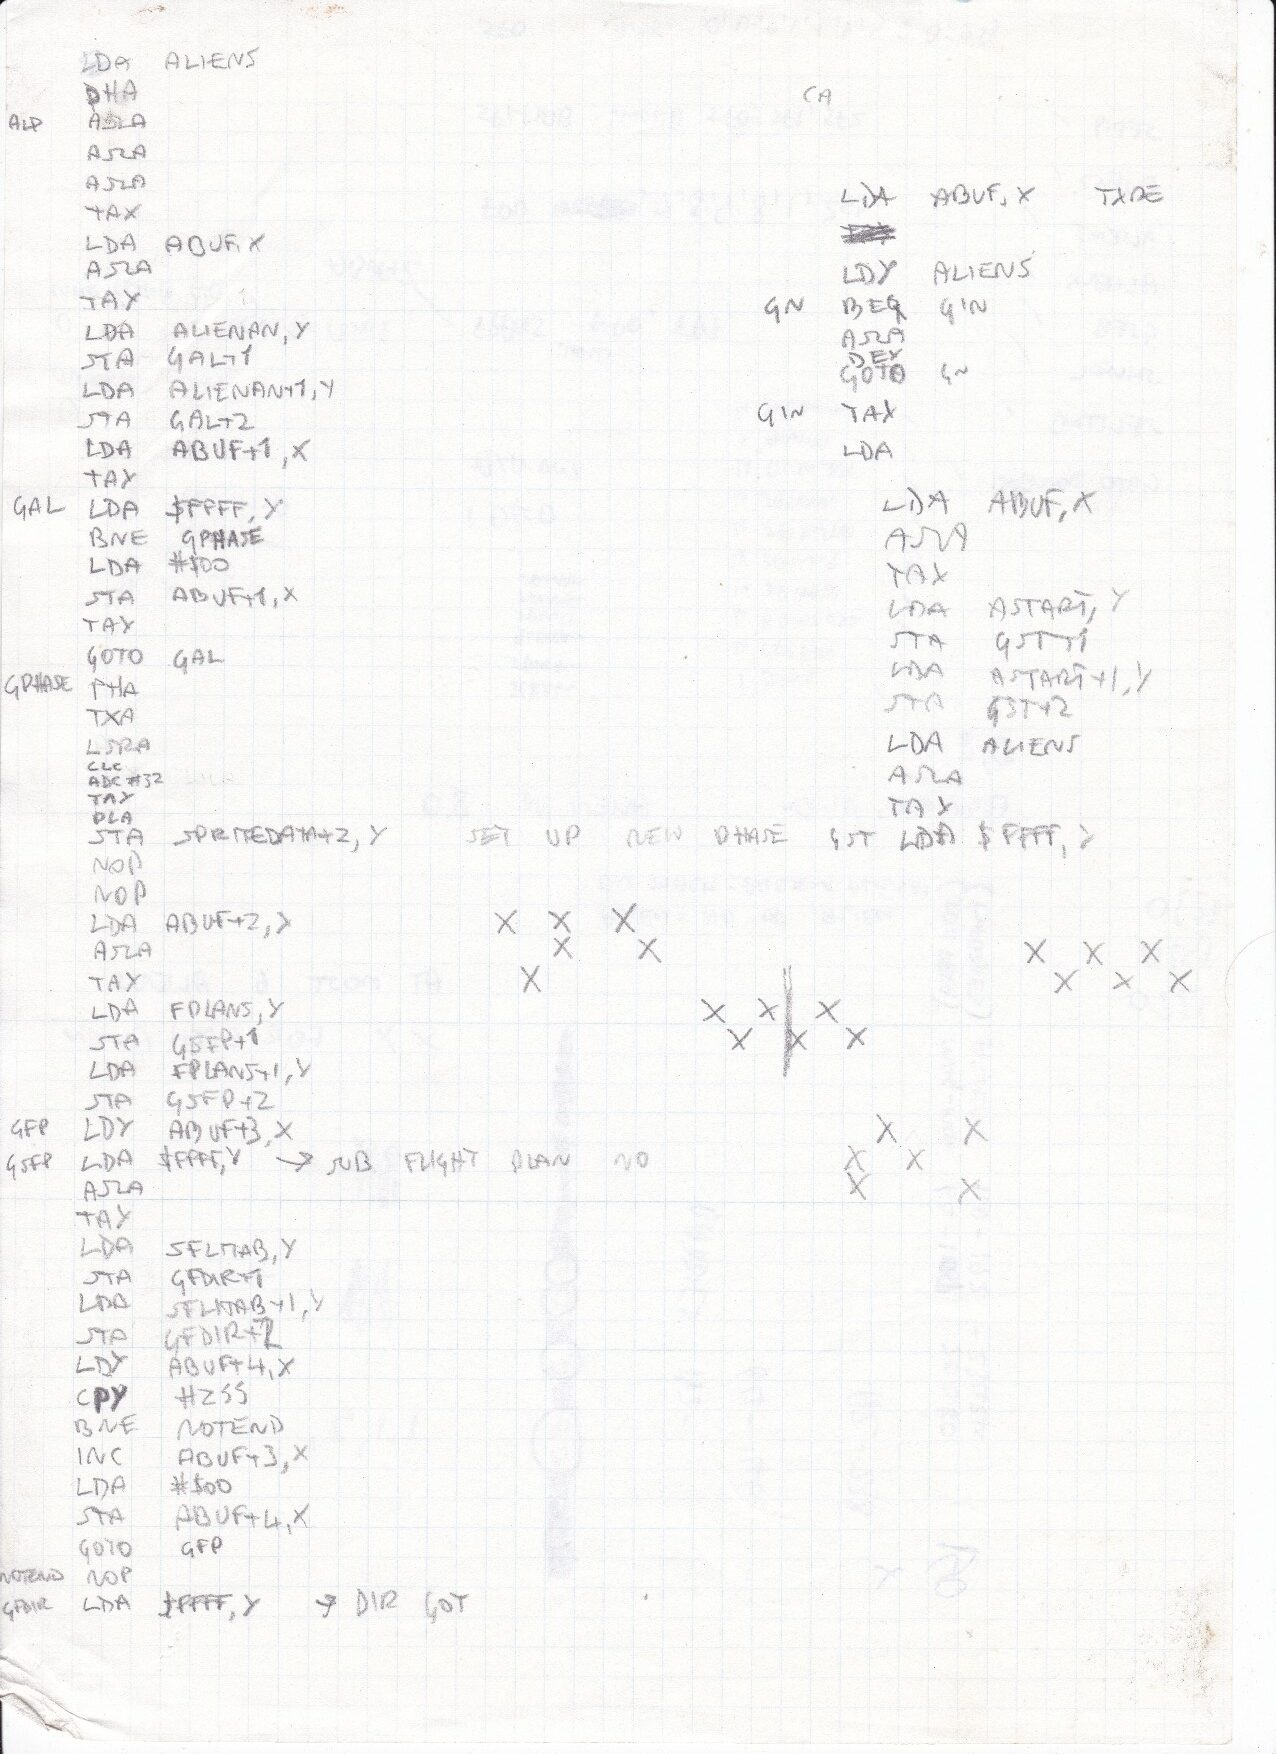 LDA ALIENS
PHA
ALP ASLA
ASLA
ASLA
TAX
LDA ABUF,X
ASLA
TAY
LDA ALIENAN,Y
STA GAL+1
LDA ALIENAN+1,Y
STA GAL+2
LDA ABUF+1,X
TAY
GAL LDA $FFFF,Y
BNE GPHASE
LDA #$00
STA ABUF+1,X
TAY
GOTO GAL
GPHASE PHA
TXA
LSRA
CLC
ADC #32
TAY
PLA
STA SPRITEDATA+2,Y SET UP NEW PHASE
NOP
NOP
LDA ABUF+2,Y
ASLA
TAY
LDA FPLANS,Y
STA GSFP+1
LDA FPLANS+1,Y
STA GSFP+2
GFP LDY ABUF+3,X
GSFP LDA $FFFF,Y → SUB FLIGHT PLAN NO
ASLA
TAY
LDA SFLTAB,Y
STA GFDIR+1
LDA SFLTAB+1,Y
STA GFDIR+2
LDY ABUF+4,X
CPY #255
BNE NOTEND
INC ABUF+3,X
LDA #$00
STA ABUF+4,X
GOTO GFP
NOTEND NOP
GFDIR LDA $FFFF,Y → DIR GOT
CA
LDA ABUF,X
LDY ALIENS
GN BEQ GIN
ASLA
DEY
GOTO GN
GIN TAX
LDA
LDA ABUF,X
ASLA
TAX
LDA ASTART,Y
STA GST+1
LDA ASTART+1,Y
STA GST+2
LDA ALIENS
ASLA
TAY
GST LDA $FFFF,Y
X X X
X X
X
X X X
X X X
X X X
X X X
X X
X X
X X